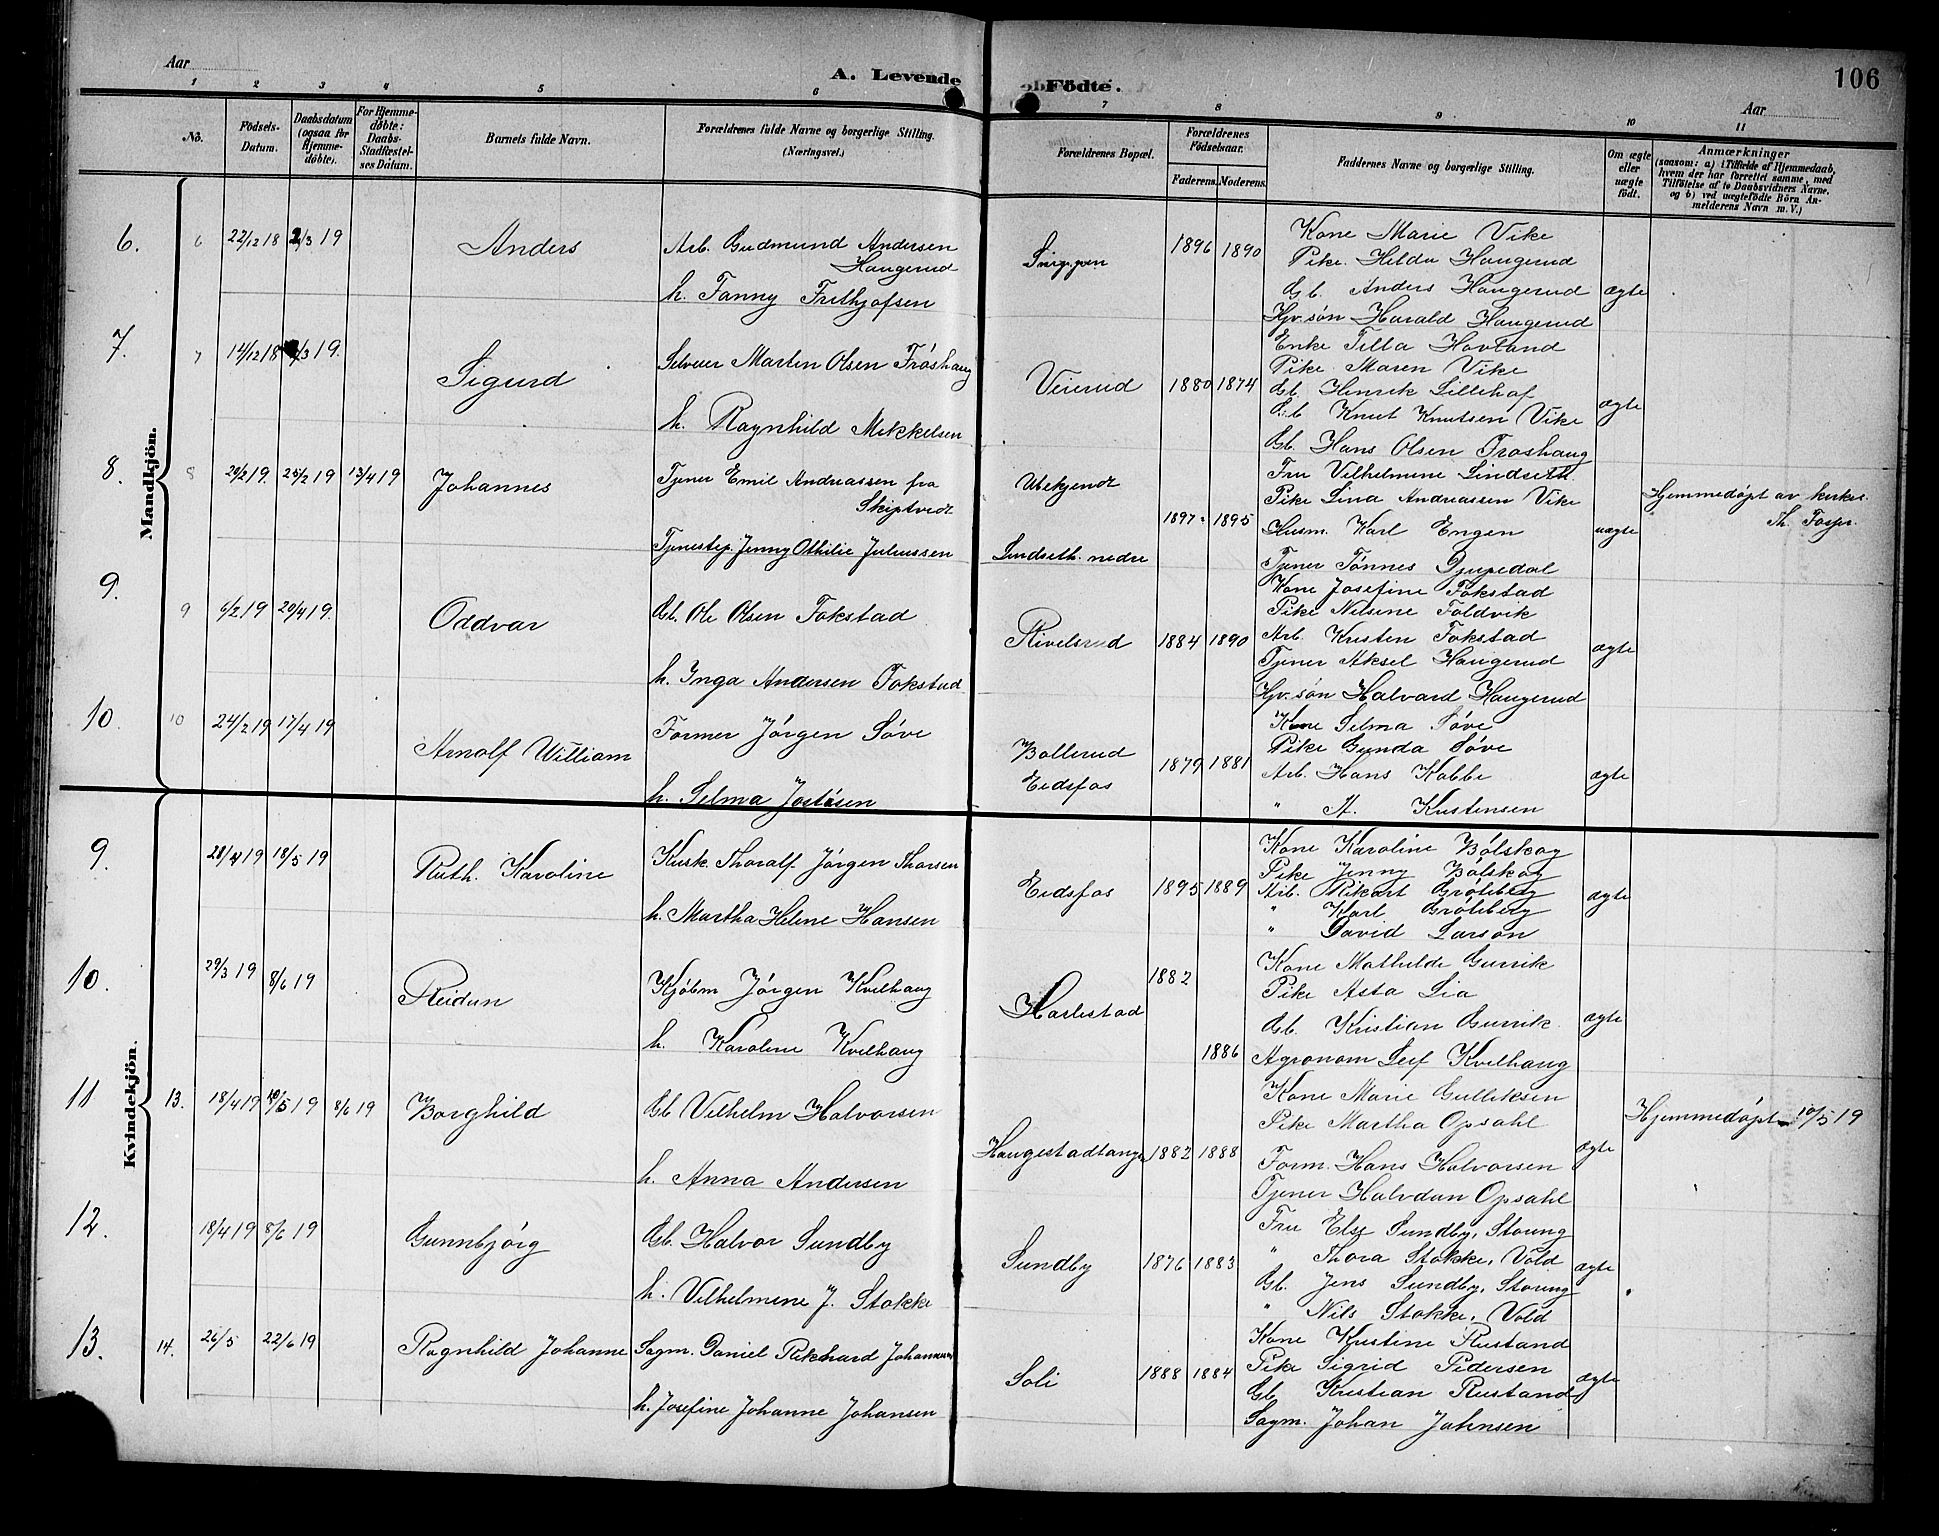 Aar
A. Levende
Födte.
106
Aar
1 2 3 4 5 6 7 8 9 10 11
No.
Födsels-Datum.
Daabsdatum (ogsaa för Hjemme-döbte).
For Hjemme-döbte: Daabs-Stadfæstel-ses Datum.
Barnets fulde Navn.
Forældrenes fulde Navne og borgerlige Stilling.
(Næringsvei.)
Forældrenes Bopæl.
Forældrenes Födselsaar.
Faderens. Moderens.
Faddernes Navne og borgerlige Stilling.
Om ægte eller uægte födt.
Anmærkninger
(saasom: a) i Tilfælde af Hjemmedaab,
hvem der har forrettet samme, med
Tilföielse af to Daabsvidners Navne,
og b) ved uægtefödte Börn An-
melderens Navn m. V.)
Mandkjön.
6. 6 22/12 18 2/3 19 Anders
Arb. Gudmund Andersen
Haugerud
h. Fanny Frithjofsen
1896 1890
Kone Marie Vike
Pike Helda Haugerud
Gb. Anders Haugerud
Hjv. søn Harald Haugerud
ægte
7. 7 14/12 18 /3 19. Sigurd
Selveier Martin Olsen Frøshaug
h. Ragnhild Mikkelsen
Veierud 1880 1874
Enke Tilla Hovland
Pike Maren Vike
Gb. Henrik Lillehaf
Gb Knut Knutsen Vike
Gb. Hans Olsen Froshaug
ægte
8. 8 20/2 19. 25/2 19 13/4 19 Johannes
Tjener Emil Andreassen fra
Skiptvedt
Tjenestep. Jenny Othilie Juliussen
Ubekjendt
Lindseth nedre
1897 1895
Fru Vilhelmine Lindseth
Pike Lina Andreassen Vike
Husm. Karl Engen
Tjener Tønnes Djupedal
uægte
Hjemmedøpt av kirkes.
Th. Fosse.
9. 9 6/2 19 20/4 19. Oddvar
Gb. Ole Olsen Fokstad
h. Inga Andersen Fokstad
Rivelsrud 1884 1890
Kone Josefine Fokstad
Pike Nilsine Foldvik
Arb. Kristen Fokstad
Tjener Aksel Haugerud
Hjv. søn Halvard Haugerud
ægte
10. 10 24/2 19 17/4 19 Arnolf William
Former Jørgen Søve
h. Selma Jostisen
Bollerud
Eidsfos
1879 1881
Kone Selma Søve
Pike Gunda Søve
Arb. Hans Kobbe
" A. Kristensen
ægte
Kvindekjön.
9. 28/4 19 18/5 19 Ruth. Karoline
Kusk. Thoralf Jørgen Thorsen
h. Martha Helene Hansen
Eidsfos 1895 1889
Kone Karoline Bølskog
Pike Jenny Bølskog
Arb. Rikart Grøteberg
" Karl Grøteberg
" David Larson
ægte
10. 29/3 19 8/6 19 Reidun
Kjøbm Jørgen Kvilhaug
h. Karoline Kvilhaug
Haslestad 1882
1886
Kone Mathilde Gunrik
Pike Asta Lia
Gb. Kristian Gunrik
Agronom Leif Kvilhaug
ægte
11 13. 18/4 19 10/5 19 8/6 19 Borghild
Gb Vilhelm Halvorsen
h. Anna Andersen
Haugestadtangen 1882 1888
Kone Marie Gulliksen
Pike Martha Opsahl
Form. Hans Halvorsen
Tjener Halvdan Opsahl
ægte
Hjemmedøpt 10/5 19
12. 18/4 19 8/6 19 Gunnbjørg
Gb. Halvor Sundby
h. Vilhelmine J. Stokke
Sundby 1876 1883
Fru Else Sundby, Staung
" Thora Stokke, Vold
Gb. Jens Sundby, Staung
" Nils Stokke, Vold
ægte
13. 14. 26/5 22/6 19 Ragnhild Johanne
Sagm. Daniel Rikhard Johannesen
h. Josefine Johanne Johansen
Soli 1888 1884
Kone Kristine Rustand
Pike Sigrid Pedersen
Gb. Kristian Rustand
Sagm. Johan Johnsen
ægte